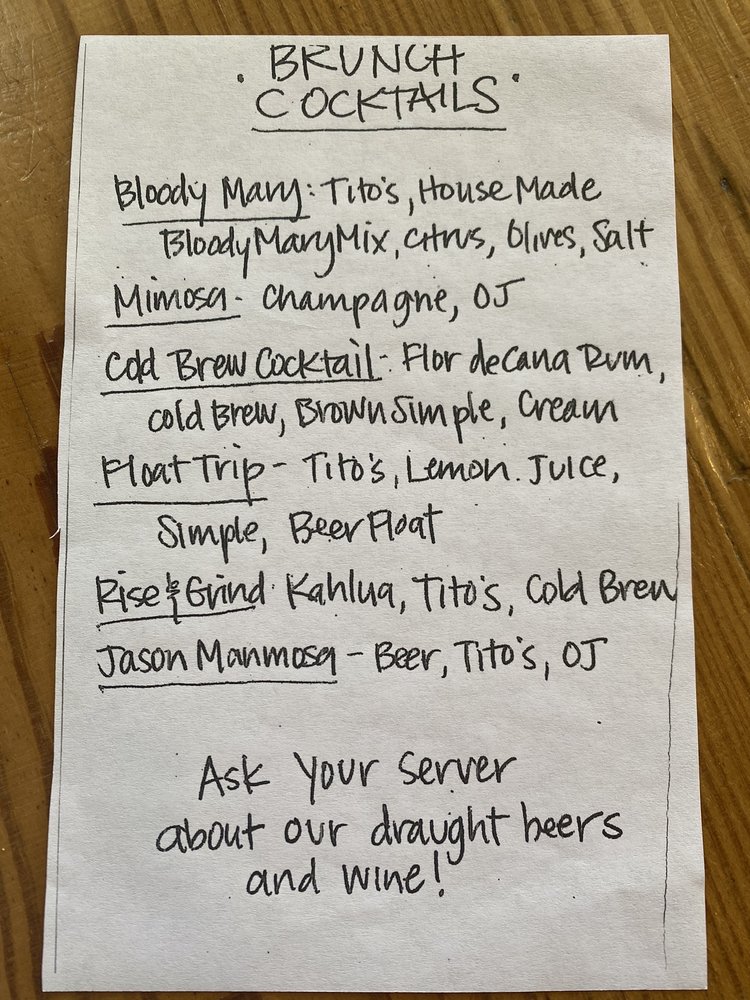 · BRUNCH ·
COCKTAILS
Bloody Mary: Tito's, House Made
Bloody Mary Mix, Citrus, Olives, Salt
Mimosa - Champagne, OJ
Cold Brew Cocktail - Flor de Cana Rum,
Cold Brew, Brown Simple, Cream
Float Trip - Tito's, Lemon Juice,
Simple, Beer Float
Rise & Grind Kahlua, Tito's, Cold Brew
Jason Manmosa - Beer, Tito's, OJ
Ask Your Server
about our draught beers
and wine!